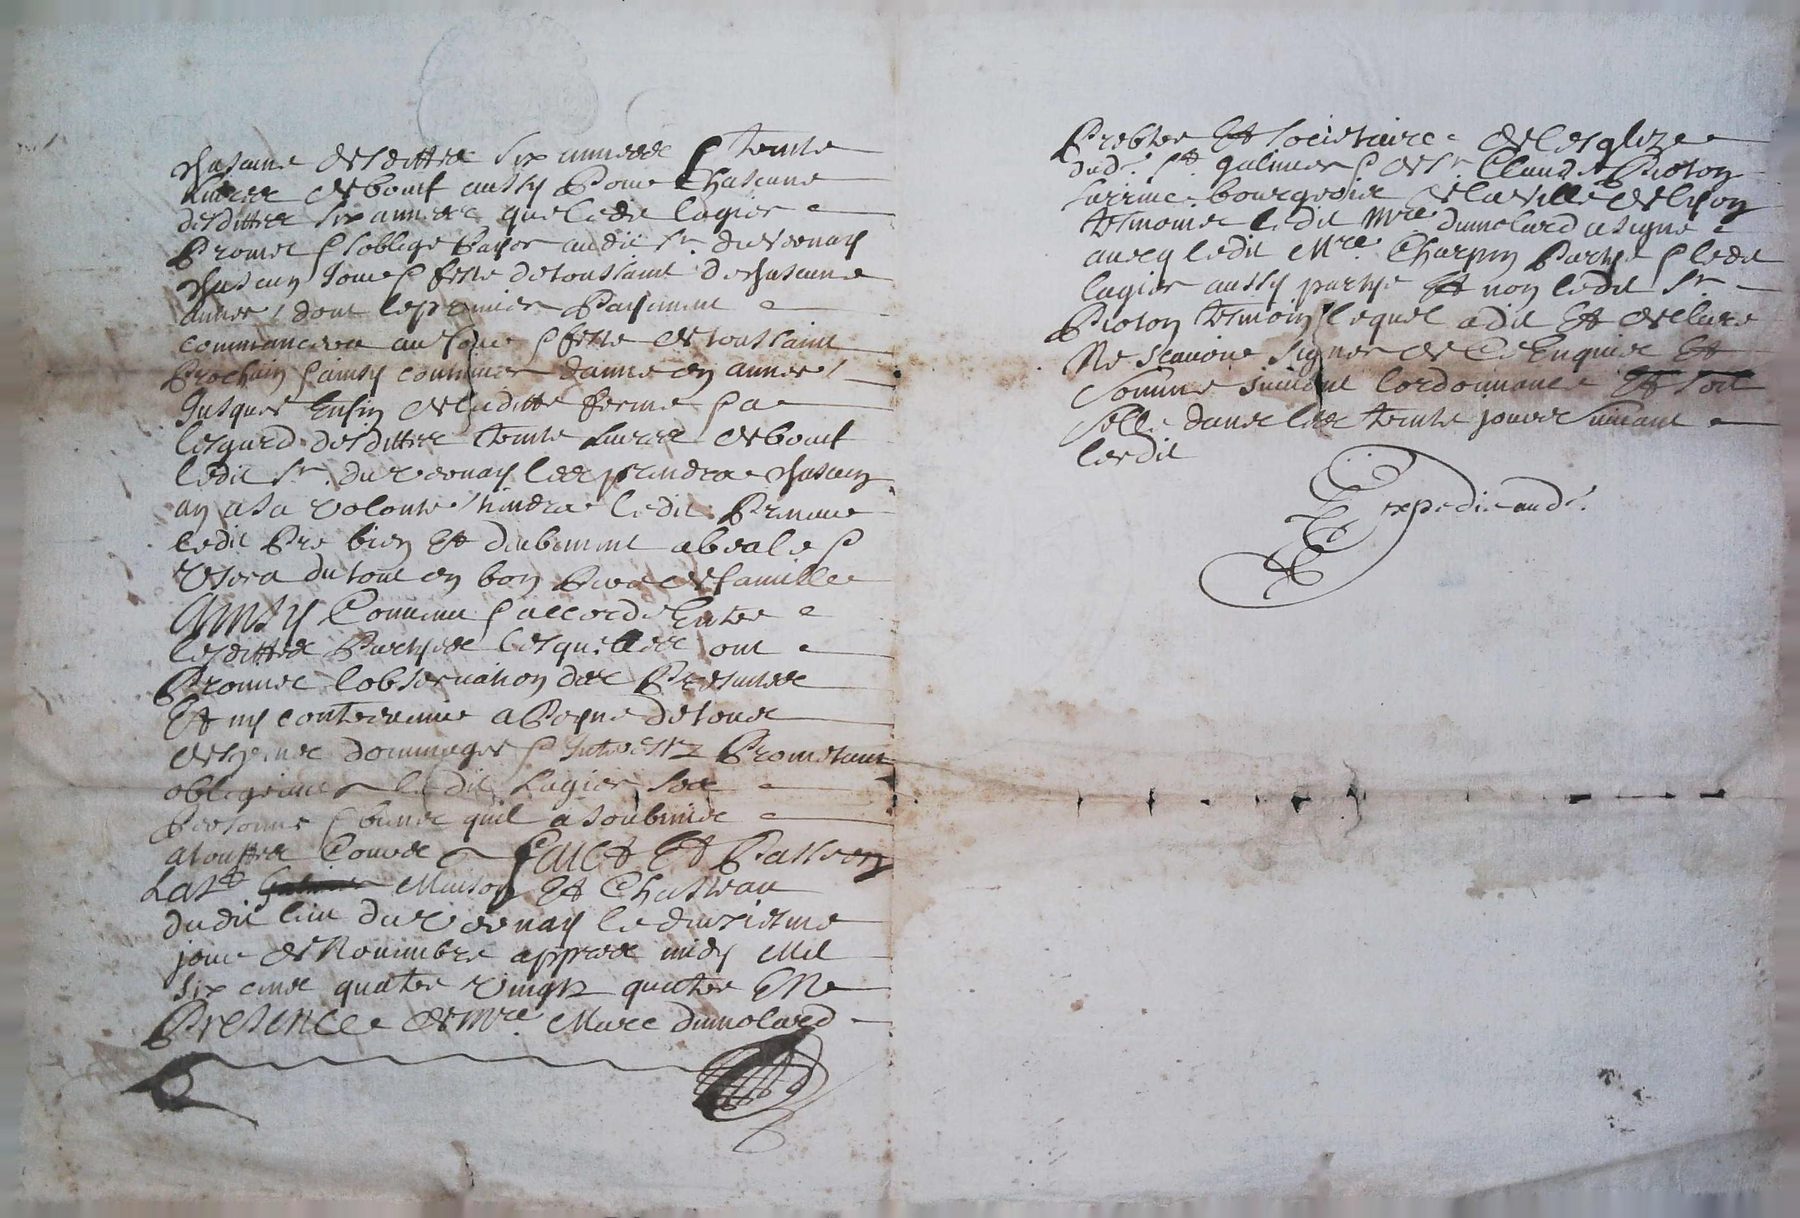 chascune desdittes six années & trente
livres de beurt aussy pour chascune
desdittes six années que ledit lagier
promet & soblige payer audit sr. du vernay
chascun jour & feste de toussaint de chascune
année / dont le premier payement
commancera au jour & feste de toussaint
prochain & ainsy continuer dannée en année /
jusques enfin de laditte ferme & a
lesgard desdittes trente livres de beurt
ledit sr. du vernay les prendra chascun
an a sa volonté / tiendra ledit preneur
ledit pré bien et deubement abealé &
usera du tout en bon pere de famille
Ainsy convenu & accordé entre
lesdittes partyes lesquelles ont
promis lobservation des presentes
et ny contrevenir a peyne de tous
despens dommages & interestz prometant
obligeant ledit Lagier ses
personne & biens quil a soubmis
a touttes cours faict et passé en
la st maison et chasteau
dudit lieu du vernay le deuxiesme
jour de novembre appres midy mil
six cens quatre vingtz quatre en
presence de mre. Marc dumolard
prebtre et societaire de lesglize
dud. st. galmier & de sr. Claude pioton
bourgeois de la ville de lyon
tesmoins ledit mre dumolard a signé
avecq ledit Mre. Charpin partye & ledit
lagier aussy partye et non ledit sr
pioton tesmoin lequel a dit et declaré
ne scavoir signer de ce enquis et
sommé suivant lordonnance et soit
sellé dans les trente jours suivant
ledit
Expedié aud.